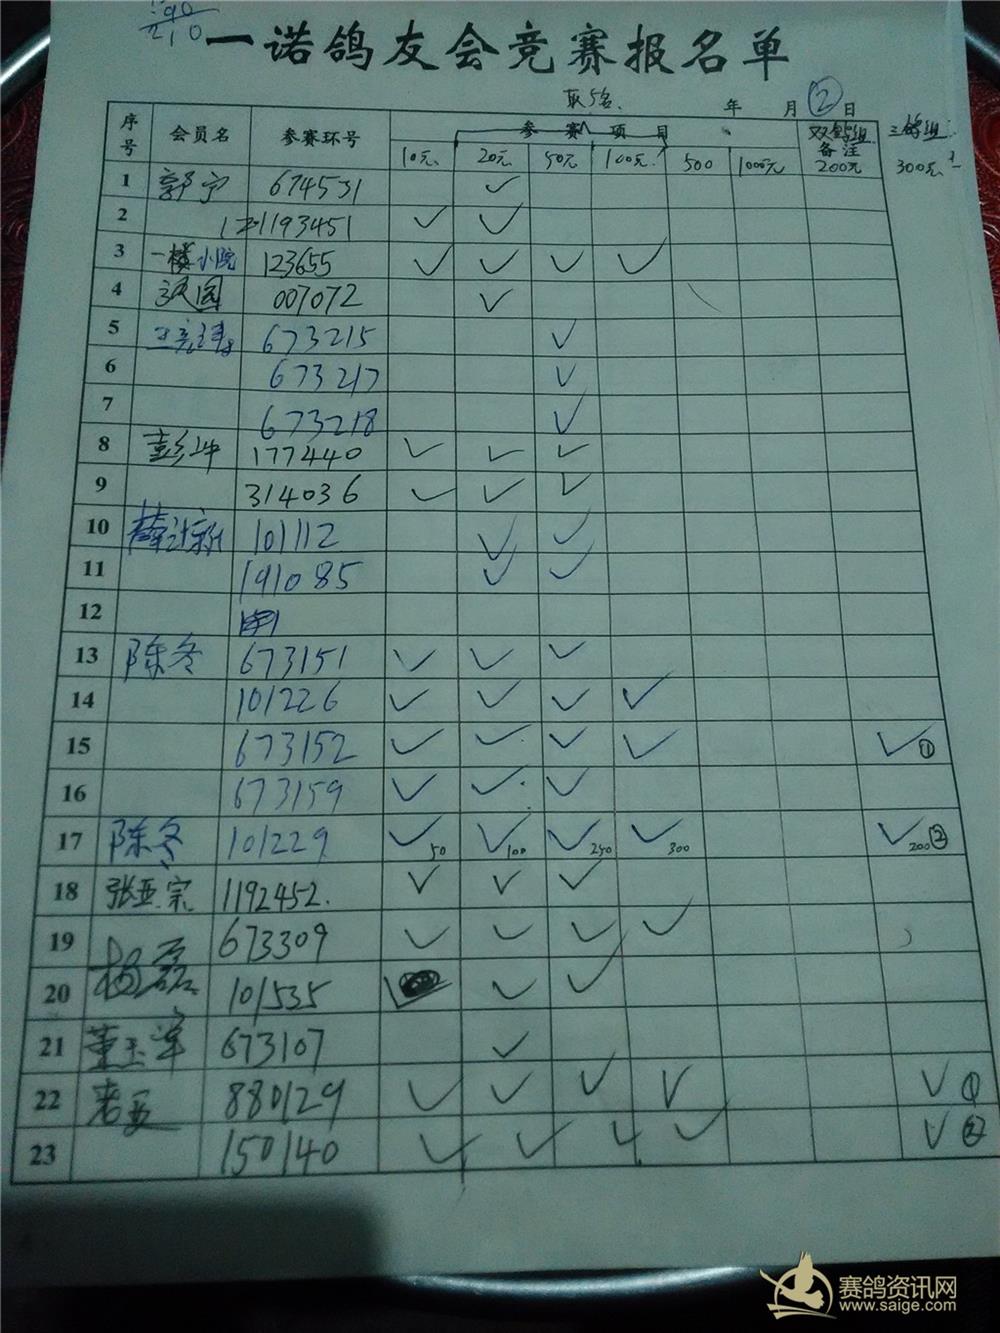 90
210
一诺鸽友会竞赛报名单
取5名. 年 月 ② 日
序号 会员名 参赛环号 参赛项目 双鸽组 备注 200元 三鸽组 300元
10元 20元 50元 100元 500 1000元
1 郭宁 674531 ✓
2 1193451 ✓ ✓
3 一楼小院 123655 ✓ ✓ ✓ ✓
4 007072 ✓
5 673215 ✓
6 673217 ✓
7 673218 ✓
8 177440 ✓ ✓ ✓
9 314036 ✓ ✓ ✓
10 101112 ✓ ✓
11 191085 ✓ ✓
12
13 陈冬 673151 ✓ ✓ ✓
14 101226 ✓ ✓ ✓ ✓
15 673152 ✓ ✓ ✓ ✓ ✓①
16 673159 ✓ ✓ ✓
17 陈冬 101229 ✓50 ✓100 ✓250 ✓300 ✓200②
18 张亚宗 1192452. ✓ ✓ ✓
19 673309 ✓ ✓ ✓ ✓
20 杨磊 101535 ✓ ✓
21 董玉军 673107 ✓
22 老亚 880129 ✓ ✓ ✓ ✓ ✓①
23 150140 ✓ ✓ ✓ ✓ ✓②
赛鸽资讯网
www.saige.com